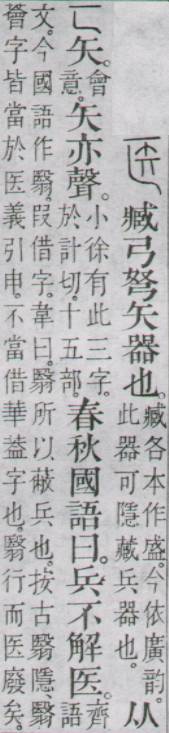 医 臧弓弩矢器也。臧各本作盛。今依廣韵。此器可隱藏兵器也。从
匸矢。會意。矢亦聲。小徐有此三字。於計切。十五部。春秋國語曰。兵不解医。齊語
文。今國語作翳。叚借字。韋曰。翳所以蔽兵也。按古翳隱、翳
薈字皆當於医義引申。不當借華葢字也。翳行而医廢矣。